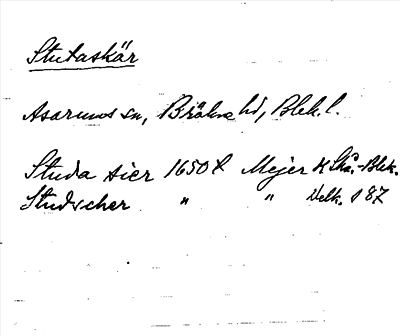 Stutaskär
Asarums sn, Bräkne hd, Blek. l.
Studa sier 1650 t Mejer K Skå.-Blek.
Studscher " " Delk. s 87